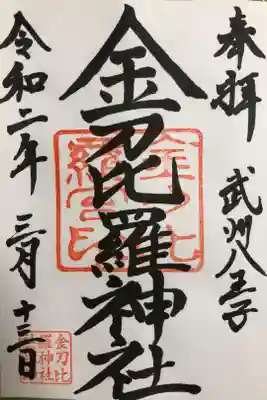 奉拝
武州八王子
金刀比羅神社
令和二年三月十三日
金刀比
羅神社